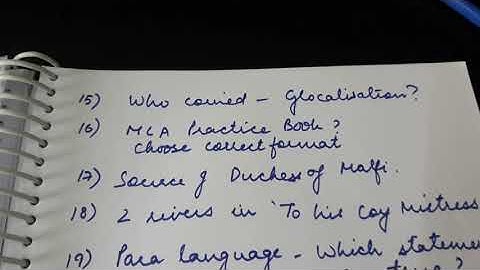 15) Who coined - Glocalisation?
16) MLA Practice Book?
Choose correct format
17) Source of Duchess of Malfi.
18) 2 rivers in 'To his Coy Mistress
19) Para language - Which stateme